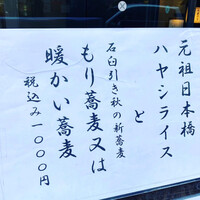 元祖日本橋
ハヤシライス
と
石臼引き秋の新蕎麦
もり蕎麦又は
暖かい蕎麦
税込み一〇〇〇円